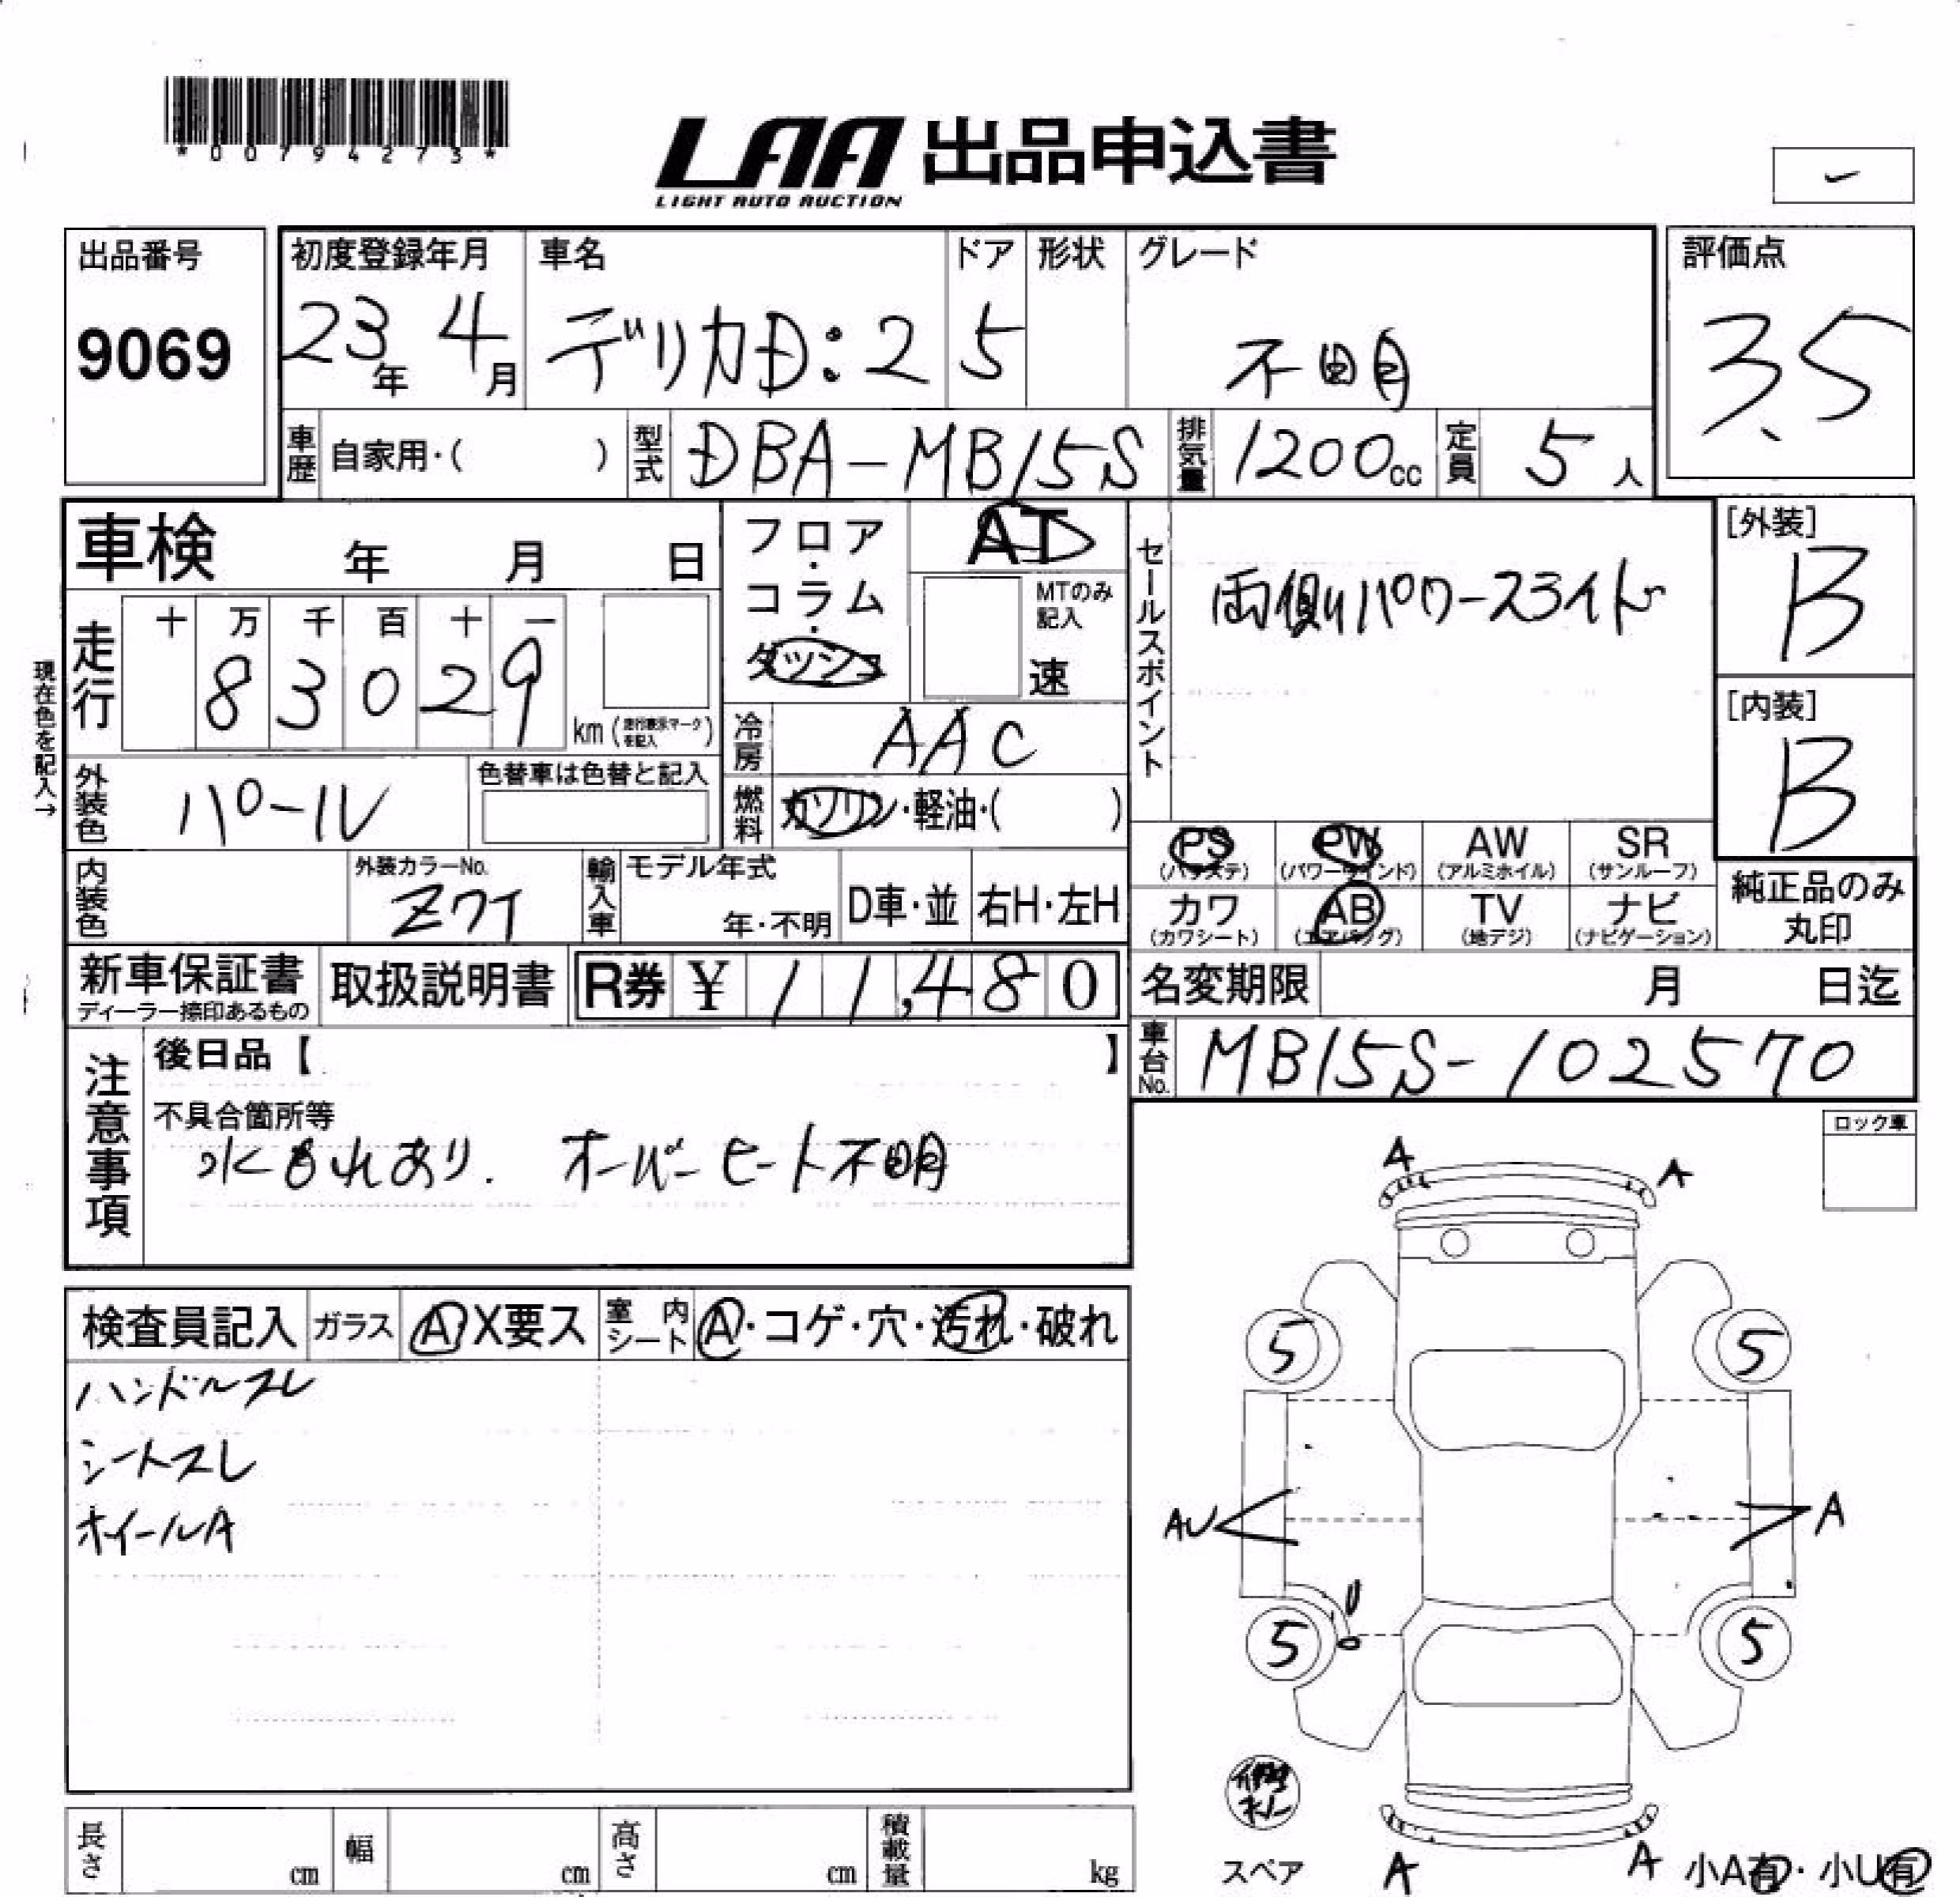 *00794273*
LAA 出品申込書
LIGHT AUTO AUCTION
出品番号
9069
初度登録年月
23年 4月
車名
デリカD:2
ドア
5
形状
グレード
不明
評価点
3.5
車歴 自家用・( )
型式 DBA-MB15S
排気量 1200cc
定員 5人
車検 年 月 日
フロア・コラム・ダッシュ
AT
MTのみ記入
速
セールスポイント
両側パワースライド
[外装]
B
[内装]
B
現在色を記入→
走行
十 万 千 百 十 一
8 3 0 2 9
km(走行表示マークを記入)
冷房 AAC
外装色 パール
色替車は色替と記入
燃料 ガソリン・軽油・( )
PS (パワステ)
PW (パワーウインド)
AW (アルミホイル)
SR (サンルーフ)
カワ (カワシート)
AB (エアバッグ)
TV (地デジ)
ナビ (ナビゲーション)
純正品のみ丸印
内装色
外装カラーNo.
Z7T
輸入車
モデル年式
年・不明
D車・並
右H・左H
新車保証書
ディーラー捺印あるもの
取扱説明書
R券 ¥ 11,480
名変期限 月 日迄
車台No. MB15S-102570
注意事項
後日品【 】
不具合箇所等
水もれあり. オーバーヒート不明
ロック車
検査員記入
ガラス A X要ス
室内シート A・コゲ・穴・汚れ・破れ
ハンドルスレ
シートスレ
ホイールA
A A
5 5
AU A
U
5 5
スペア
A A
小A有・小U有
長さ cm
幅 cm
高さ cm
積載量 kg